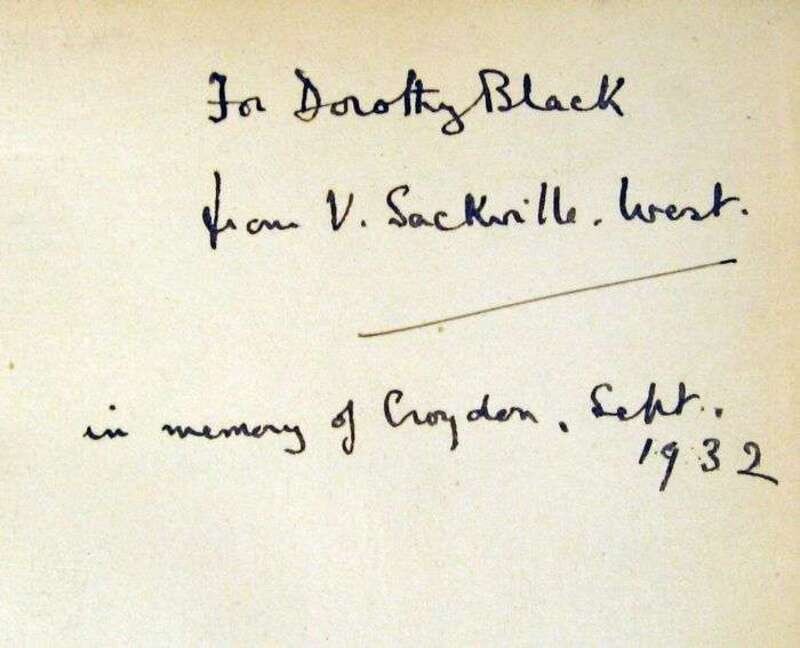 For Dorothy Black
from V. Sackville. West.
in memory of Croydon. Sept.
1932